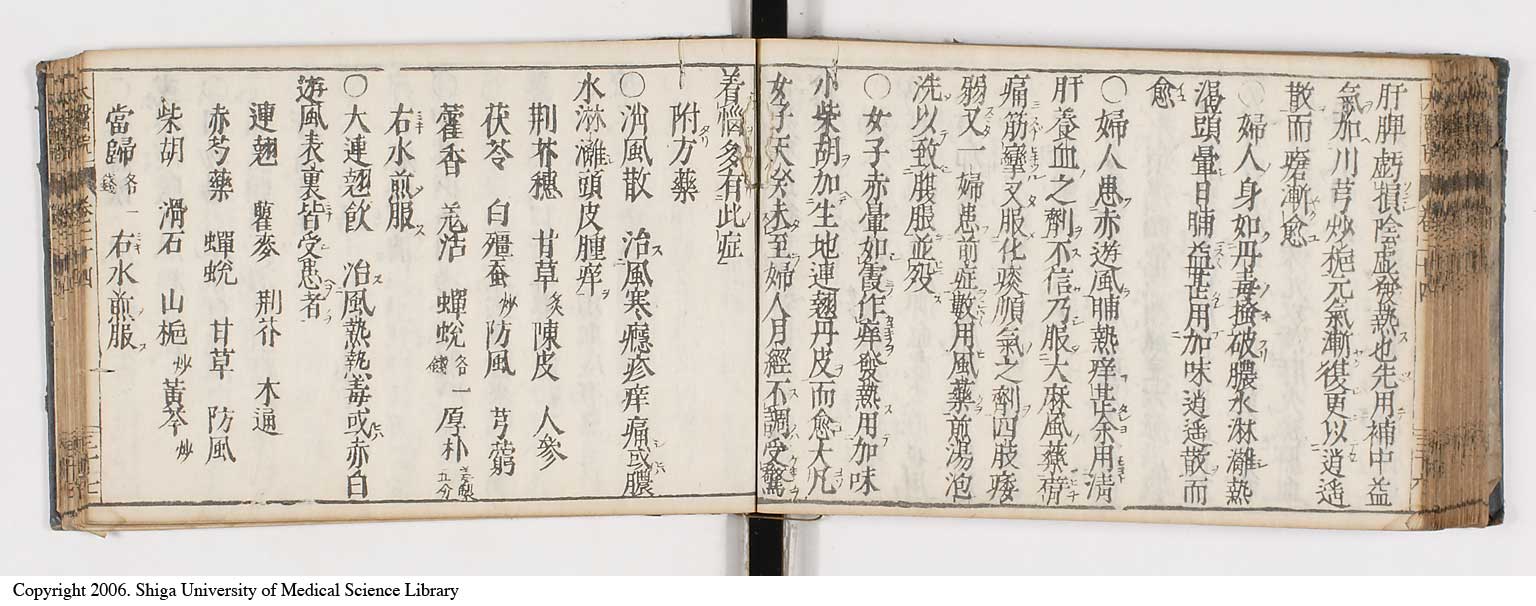 肝脾虧損陰虛發熱也先用補中益
氣加川芎炒梔元氣漸復更以逍遥
散而瘮漸愈
〇婦人身如丹毒搔破膿水淋漓熱
渴頭暈日晡益甚用加味逍遥散而
愈
〇婦人患赤遊風晡熱痒甚余用清
肝養血之劑不信乃服大麻風藥臂
痛筋攣又服化痰順氣之劑四肢痿
弱又一婦患前症數用風藥煎湯泡
洗以致腹脹並歿
〇女子赤暈如霞作痒發熱用加味
小柴胡加生地連翹丹皮而愈大凡
女子天癸未至婦人月經不調受驚
着惱多有此症
附方藥
〇消風散 治風寒癮疹痒痛或膿
水淋漓頭皮腫痒
荆芥穗 甘草炙 陳皮 人參
茯苓 白殭蚕炒 防風 芎藭
藿香 羗活 蟬蛻各一錢 厚朴姜製五分
右水煎服
〇大連翹飲 治風熱熱毒或赤白
遊風表裏皆受患者
連翹 瞿麥 荆芥 木通
赤芍藥 蟬蛻 甘草 防風
柴胡 滑石 山梔炒 黃芩炒
當歸各一錢 右水煎服
Copyright 2006. Shiga University of Medical Science Library